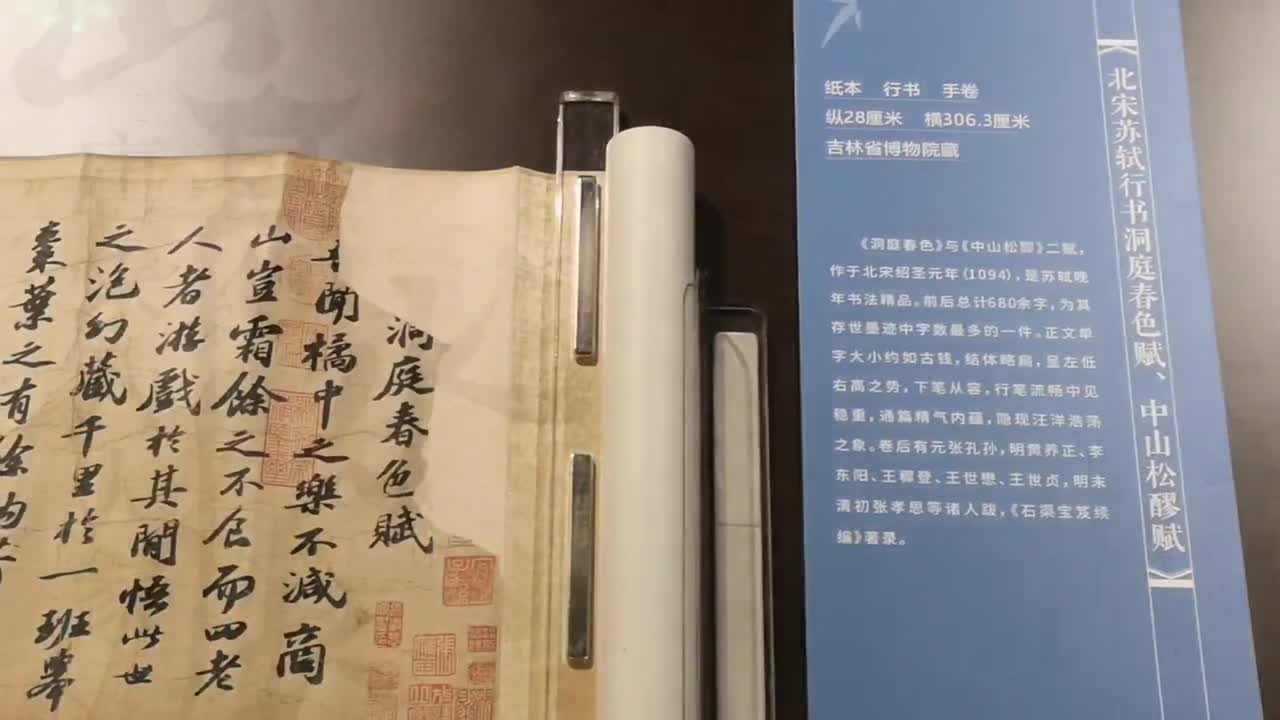 《北宋苏轼行书洞庭春色赋、中山松醪赋》
纸本 行书 手卷
纵28厘米 横306.3厘米
吉林省博物院藏
《洞庭春色》与《中山松醪》二赋，
作于北宋绍圣元年（1094），是苏轼晚
年书法精品。前后总计680余字，为其
存世墨迹中字数最多的一件。正文单
字大小约如古钱，结体略扁，呈左低
右高之势，下笔从容，行笔流畅中见
稳重，通篇精气内蕴，隐现汪洋浩荡
之象。卷后有元张孔孙，明黄养正、李
东阳、王穉登、王世懋、王世贞，明末
清初张孝思等诸人跋，《石渠宝笈续
编》著录。
洞庭春色賦
聞橘中之樂不減商
山豈霜餘之不食而四老
人者游戲於其間悟此世
之泡幻藏千里於一班舉
棗葉之有餘納